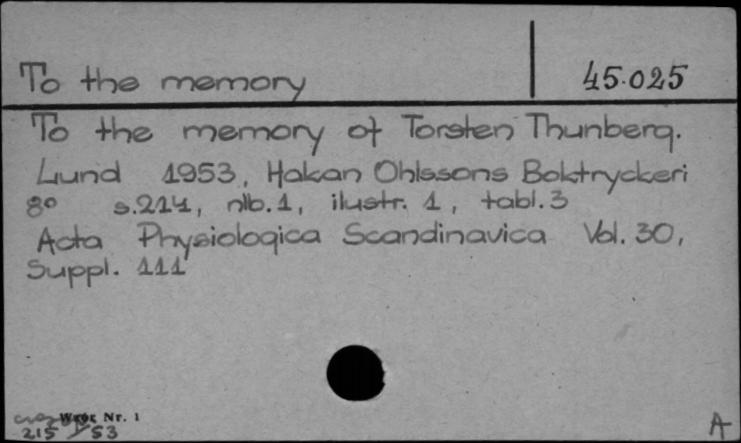 To the memory 45.025
To the memory of Torsten Thunberg.
Lund 1953, Hakan Ohlssons Boktryckeri
8° s.214, nlb.1, ilustr. 1, tabl.3
Acta Physiologica Scandinavica Vol. 30,
Suppl. 111
Nr. 1
215 53
A